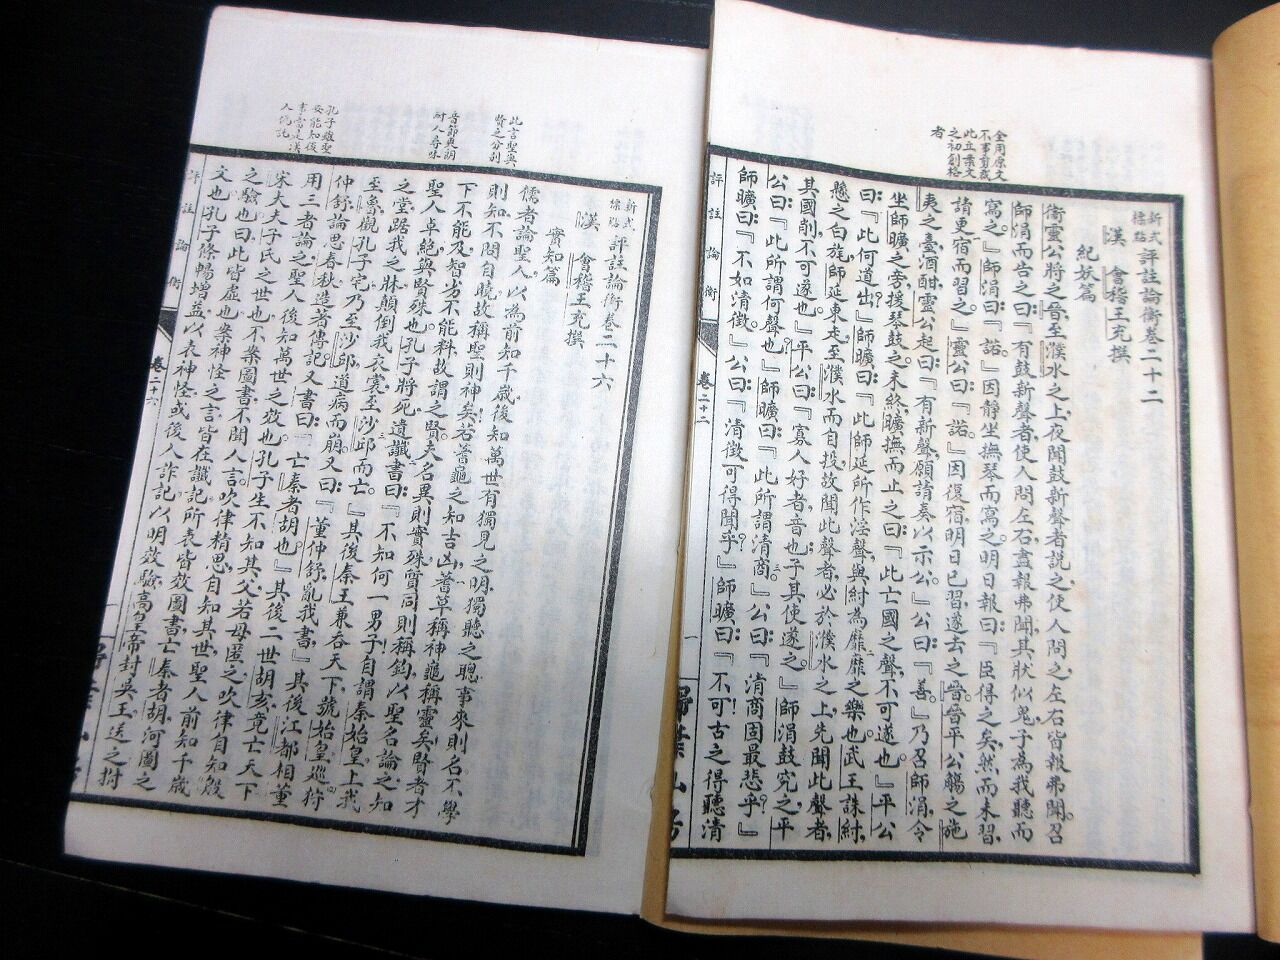 全用原文
不事剪裁
此立業文
之初創格
者
新式標點 評註論衡卷二十二
漢 會稽王充撰
紀妖篇
衛靈公將之晉至濮水之上夜聞鼓新聲者説之使人問之左右皆報弗聞召
師涓而告之曰『有鼓新聲者使人問左右盡報弗聞其狀似鬼子為我聽而
寫之。』師涓曰『諾。』因靜坐撫琴而寫之明日報曰『臣得之矣然而未習
請更宿而習之。』靈公曰『諾。』因復宿明日已習遂去之晉晉平公觴之施
夷之臺酒酣靈公起曰『有新聲願請奏以示公。』公曰『善。』乃召師涓令
坐師曠之旁援琴鼓之未終曠撫而止之曰『此亡國之聲不可遂也。』平公
曰『此何道出？』師曠曰『此師延所作淫聲與紂為靡靡之樂也武王誅紂
懸之白旄師延東走至濮水而自投故聞此聲者必於濮水之上先聞此聲者
其國削不可遂也。』平公曰『寡人好者音也子其使遂之。』師涓鼓究之平
公曰『此所謂何聲也』師曠曰『此所謂清商。』公曰『清商固最悲乎？』
師曠曰『不如清徵。』公曰『清徵可得聞乎？』師曠曰『不可！古之得聽清
評註論衡
卷二十二
一
此言聖與
賢之分別
音節爽朗
耐人尋味
孔子雖聖
安能知後
事當是漢
人偽託
新式標點 評註論衡卷二十六
漢 會稽王充撰
實知篇
儒者論聖人以為前知千歲後知萬世有獨見之明獨聽之聰事來則名不學
則知不問自曉故稱聖則神矣若蓍龜之知吉凶蓍草稱神龜稱靈矣賢者才
下不能及智劣不能料故謂之賢夫名異則實殊質同則稱鈞以聖名論之知
聖人卓絕與賢殊也孔子將死遺讖書曰『不知何一男子自謂秦始皇上我
之堂踞我之牀顛倒我衣裳至沙邱而亡。』其後秦王兼吞天下號始皇巡狩
至魯觀孔子宅乃至沙邱道病而崩。又曰『董仲舒亂我書』其後江都相董
仲舒論思春秋造著傳記又書曰『亡秦者胡也』其後二世胡亥竟亡天下
用三者論之聖人後知萬世之效也孔子生不知其父若母匿之吹律自知殷
宋大夫子氏之世也不案圖書不聞人言吹律精思自知其世聖人前知千歲
之驗也曰此皆虛也案神怪之言皆在讖記所表皆效圖書亡秦者胡河圖之
文也孔子條暢增益以表神怪或後人詐記以明效驗高皇帝封吳王送之拊
評註論衡
卷二十六
一